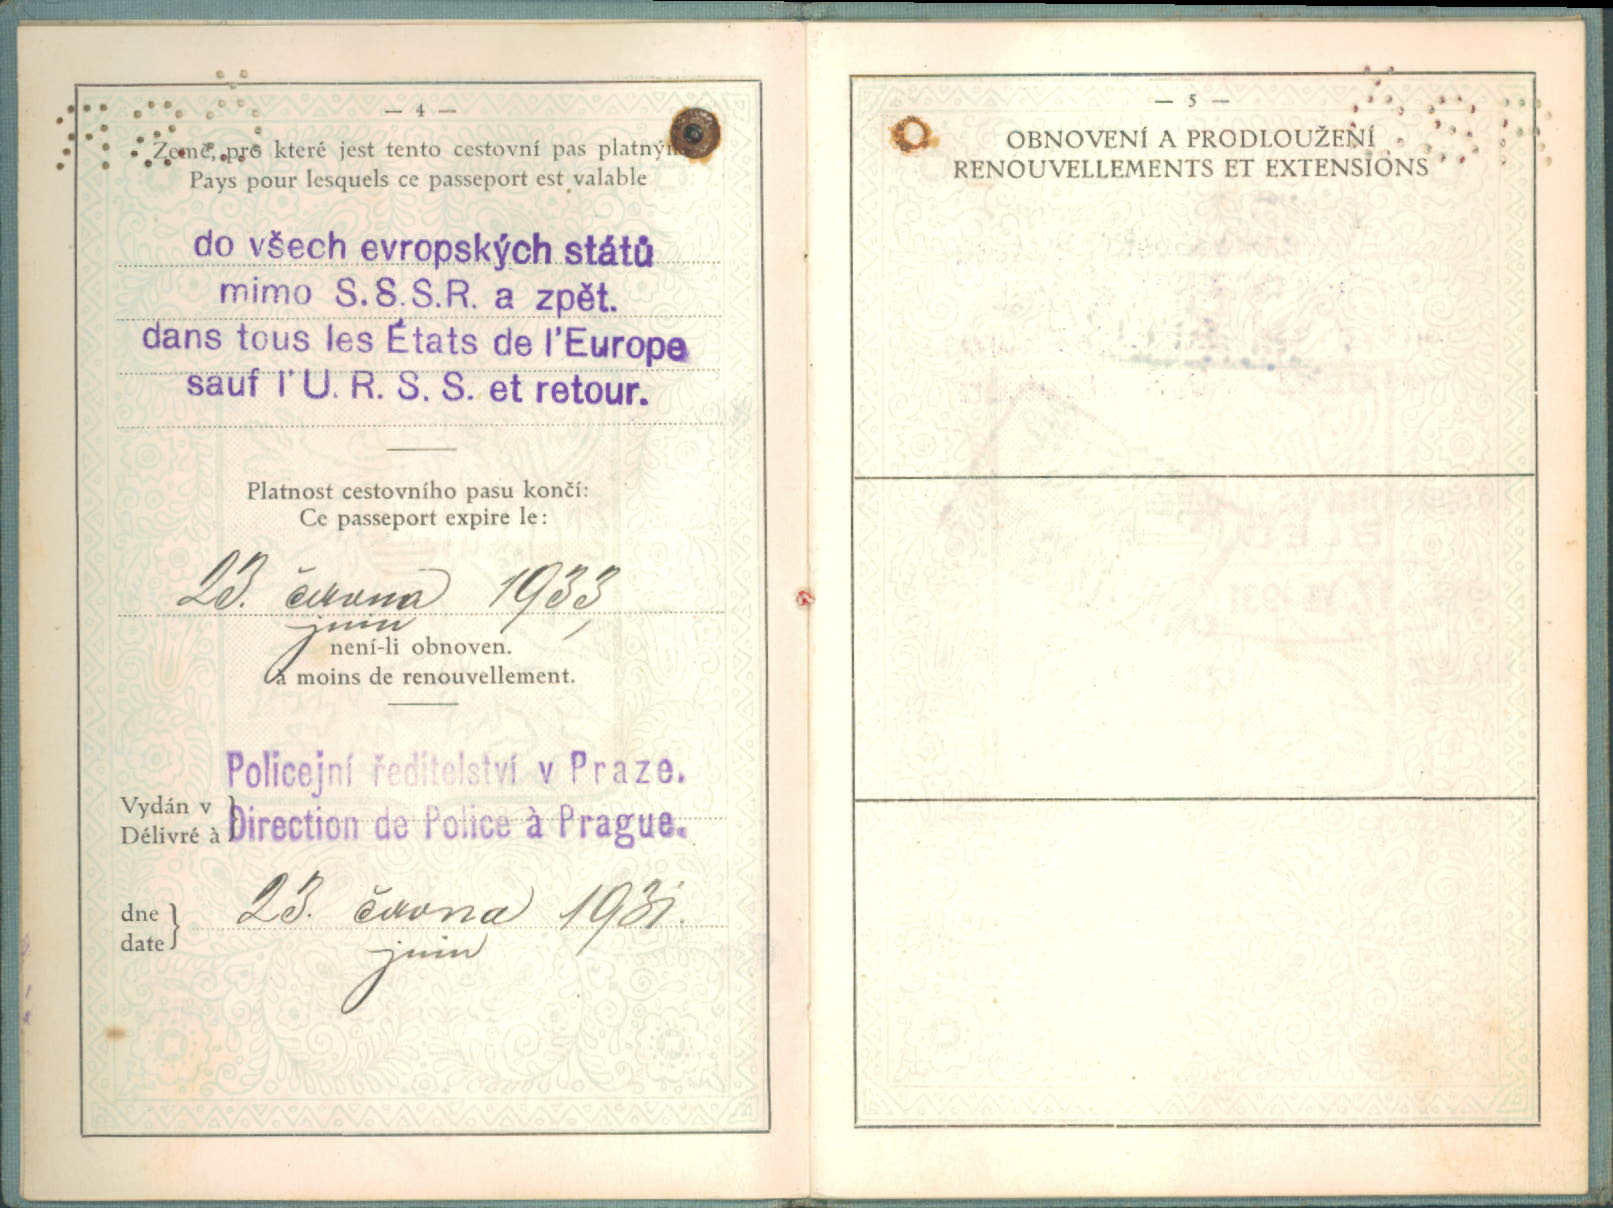 — 4 —
Země, pro které jest tento cestovní pas platným
Pays pour lesquels ce passeport est valable
do všech evropských států
mimo S.S.S.R. a zpět.
dans tous les États de l'Europe
sauf l'U.R.S.S. et retour.
Platnost cestovního pasu končí:
Ce passeport expire le:
23. června 1933,
juin
není-li obnoven.
à moins de renouvellement.
Policejní ředitelství v Praze.
Vydán v
Délivré à
Direction de Police à Prague.
dne
date
23. června 1931.
juin
— 5 —
OBNOVENÍ A PRODLOUŽENÍ
RENOUVELLEMENTS ET EXTENSIONS